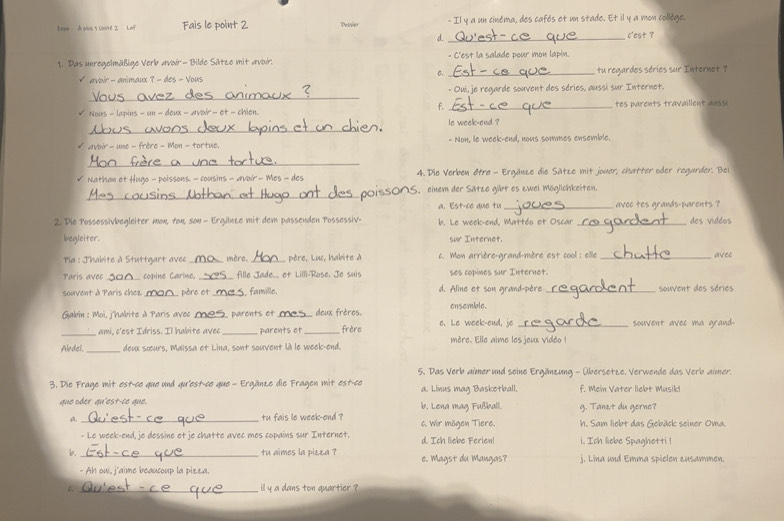 À plus 1 Unité 2
Fais le point 2
Dossier
1. Das unregelmäßige Verb avoir - Bilde Sätze mit avoir.
✓ avoir - animaux ? - des - Vous
Vous avez des animaux ?
✓ Nous - lapins - un - deux - avoir - et - chien.
Nous avons deux lapins et un chien.
✓ avoir - une - frère - Mon - tortue.
Mon frère a une tortue.
✓ Nathan et Hugo - poissons. - cousins - avoir - Mes - des
Mes cousins Nathan et Hugo ont des poissons.
2. Die Possessivbegleiter mon, ton, son - Ergänze mit dem passenden Possessiv-
begleiter.
Pia : J'habite à Stuttgart avec ma mère. Mon père, Luc, habite à
Paris avec son copine Carine, ses fille Jade... et Lilli-Rose. Je suis
souvent à Paris chez mon père et mes famille.
Gabin : Moi, j'habite à Paris avec mes parents et mes deux frères.
______ ami, c'est Idriss. Il habite avec ______ parents et ______ frère
Abdel. ______ deux sœurs, Maïssa et Lina, sont souvent là le week-end.
3. Die Frage mit est-ce que und qu'est-ce que - Ergänze die Fragen mit est-ce
que oder qu'est-ce que.
a. Qu'est-ce que tu fais le week-end ?
- Le week-end, je dessine et je chatte avec mes copains sur Internet.
b. Est-ce que tu aimes la pizza ?
- Ah oui, j'aime beaucoup la pizza.
c. Qu'est-ce que il y a dans ton quartier ?
- Il y a un cinéma, des cafés et un stade. Et il y a mon collège.
d. Qu'est-ce que c'est ?
- C'est la salade pour mon lapin.
e. Est-ce que tu regardes séries sur Internet ?
- Oui, je regarde souvent des séries, aussi sur Internet.
f. Est-ce que tes parents travaillent aussi
le week-end ?
- Non, le week-end, nous sommes ensemble.
4. Die Verben être - Ergänze die Sätze mit jouer, chatter oder regarder. Bei
einem der Sätze gibt es zwei Möglichkeiten.
a. Est-ce que tu joues avec tes grands-parents ?
b. Le week-end, Mattéo et Oscar regardent des vidéos
sur Internet.
c. Mon arrière-grand-mère est cool : elle chatte avec
ses copines sur Internet.
d. Aline et son grand-père regardent souvent des séries
ensemble.
e. Le week-end, je regarde souvent avec ma grand-
mère. Elle aime les jeux vidéo !
5. Das Verb aimer und seine Ergänzung - Übersetze. Verwende das Verb aimer.
a. Linus mag Basketball.
b. Lena mag Fußball.
c. Wir mögen Tiere.
d. Ich liebe Ferien!
e. Magst du Mangas?
f. Mein Vater liebt Musik!
g. Tanzt du gerne?
h. Sam liebt das Gebäck seiner Oma.
i. Ich liebe Spaghetti!
j. Lina und Emma spielen zusammen.